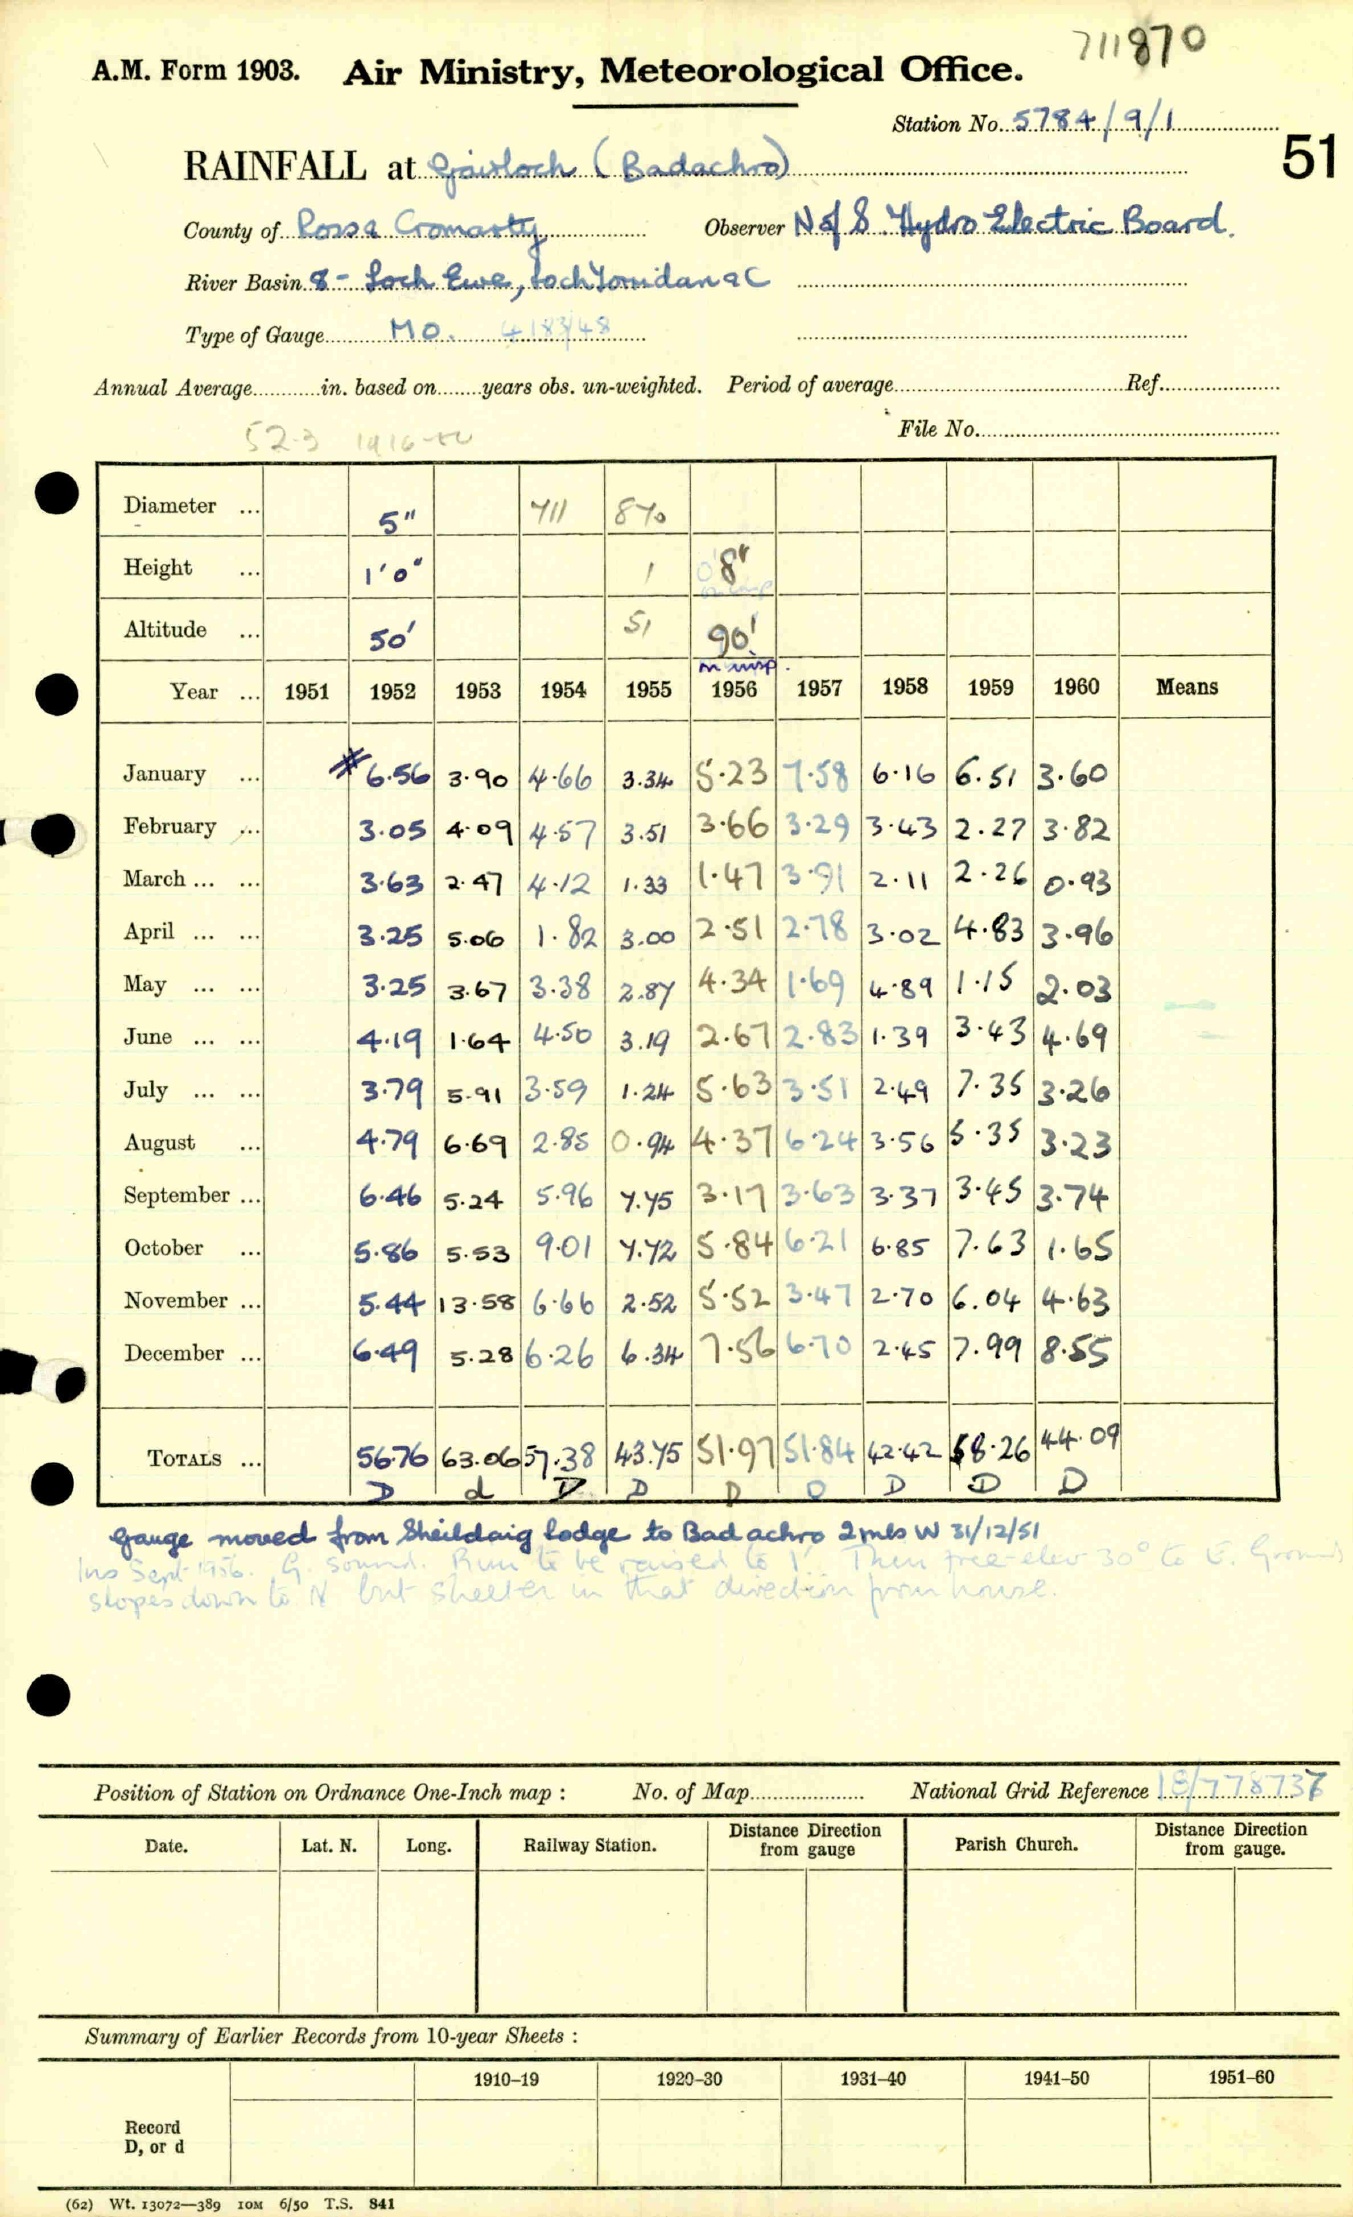 711870
A.M. Form 1903. Air Ministry, Meteorological Office.
Station No. 5784/9/1
51
RAINFALL at Gairloch (Badachro)
County of Ross & Cromarty Observer N of S. Hydro Electric Board.
River Basin 8 - Loch Ewe, Loch Torridan &C
Type of Gauge MO. 4183/48
Annual Average in. based on years obs. un-weighted. Period of average Ref.
52.3 1916-50
File No.
Diameter ... 5" 711 870
Height ... 1'0" 1 0'8"
Altitude ... 50' 51 90'
on insp.
Year ... 1951 1952 1953 1954 1955 1956 1957 1958 1959 1960 Means
January ... # 6.56 3.90 4.66 3.34 5.23 7.58 6.16 6.51 3.60
February ... 3.05 4.09 4.57 3.51 3.66 3.29 3.43 2.27 3.82
March ... ... 3.63 2.47 4.12 1.33 1.47 3.91 2.11 2.26 0.93
April ... ... 3.25 5.06 1.82 3.00 2.51 2.78 3.02 4.83 3.96
May ... ... 3.25 3.67 3.38 2.87 4.34 1.69 4.89 1.15 2.03
June ... ... 4.19 1.64 4.50 3.19 2.67 2.83 1.39 3.43 4.69
July ... ... 3.79 5.91 3.59 1.24 5.63 3.51 2.49 7.35 3.26
August ... 4.79 6.69 2.85 0.94 4.37 6.24 3.56 5.35 3.23
September ... 6.46 5.24 5.96 7.75 3.17 3.63 3.37 3.45 3.74
October ... 5.86 5.53 9.01 7.72 5.84 6.21 6.85 7.63 1.65
November ... 5.44 13.58 6.66 2.52 5.52 3.47 2.70 6.04 4.63
December ... 6.49 5.28 6.26 6.34 7.56 6.70 2.45 7.99 8.55
TOTALS ... 56.76 63.06 57.38 43.75 51.97 51.84 42.42 58.26 44.09
D d D D D D D D D
Gauge moved from Sheildaig Lodge to Badachro 2 mls W 31/12/51
Ins Sept 1956. G. sound. Rim to be raised to 1'. Then free - elev 30° to E. Ground
slopes down to N but shelter in that direction from house.
Position of Station on Ordnance One-Inch map : No. of Map National Grid Reference 18/778737
Date. Lat. N. Long. Railway Station. Distance Direction from gauge Parish Church. Distance Direction from gauge.
Summary of Earlier Records from 10-year Sheets :
1910–19 1920–30 1931–40 1941–50 1951–60
Record
D, or d
(62) Wt. 13072—389 10M 6/50 T.S. 841